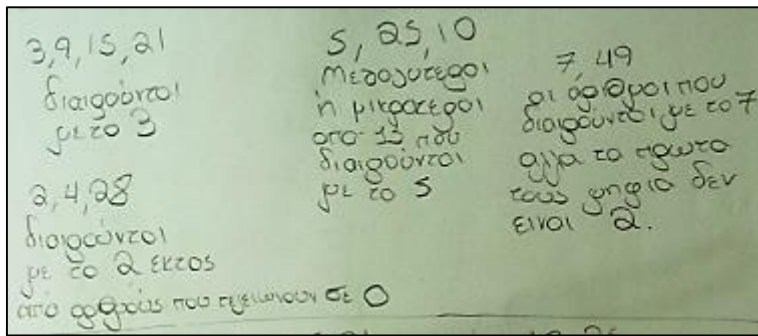 3,9,15,21
διαιρούνται
με το 3
2,4,28
διαιρούνται
με το 2 εκτος
από αριθμούς που τελειώνουν σε 0
5, 25, 10
Μεγαλύτεροι
ή μικρότεροι
απο 15 που
διαιρούνται
με το 5
7, 49
οι αριθμοι που
διαιρούνται με το 7
αλλα το πρωτο
τους ψηφιο δεν
ειναι 2.